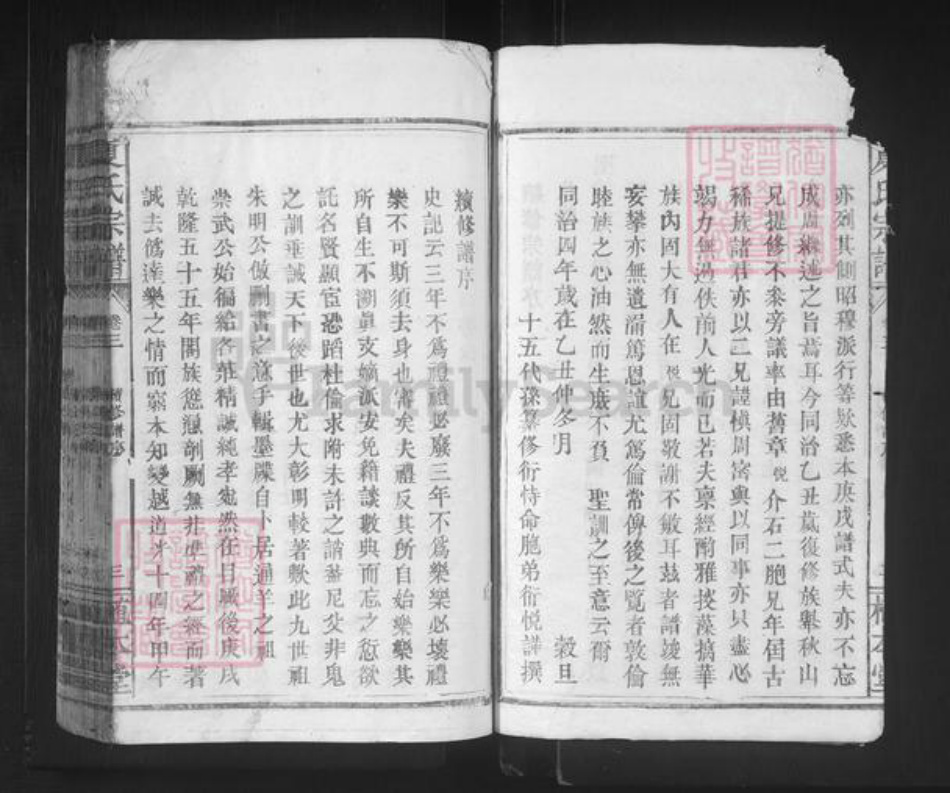 亦列其側昭穆派行等欵悉本庚戌譜式夫亦不忘
成周繼述之旨焉耳今同治乙丑歲復修族舉秋山
兄提修不參旁議率由舊章悅介石二胞兄年固古
稀族諸君亦以二兄謹愼周密與以同事亦只盡心
竭力無過佚前人光而已若夫稟經酌雅掞藻摛華
族內固大有人在悅兄固敬謝不敏耳茲者譜竣無
妄攀亦無遺漏篤恩誼尤篤倫常俾後之覽者敦倫
睦族之心油然而生庶不負 聖訓之至意云爾
同治四年歲在乙丑仲冬月 穀旦
十五代採纂修衍恃命胞弟衍悅謹撰
續修譜序
史記云三年不爲禮禮必廢三年不爲樂樂必壞禮
樂不可斯須去身也審矣夫禮反其所自始樂樂其
所自生不溯眞支嫡派安免籍談數典而忘之愆欲
託名賢顯宦恐蹈杜倫求附未許之誚蓋尼父非鬼
之訓垂誡天下後世也尤大彰明較著歟此九世祖
朱明公倣刪書之意手輯墨牒自卜居通羊之祖
崇武公始徧給各莊精誠純孝宛然在目厥後庚戌
乾隆五十五年闔族慫慂剞劂無非準禮之經而著
誠去僞達樂之情而窮本知變越道光十四年甲午
夏氏宗譜
卷三
續修譜序
三
植本堂
氏宗譜
本堂
FamilySearch